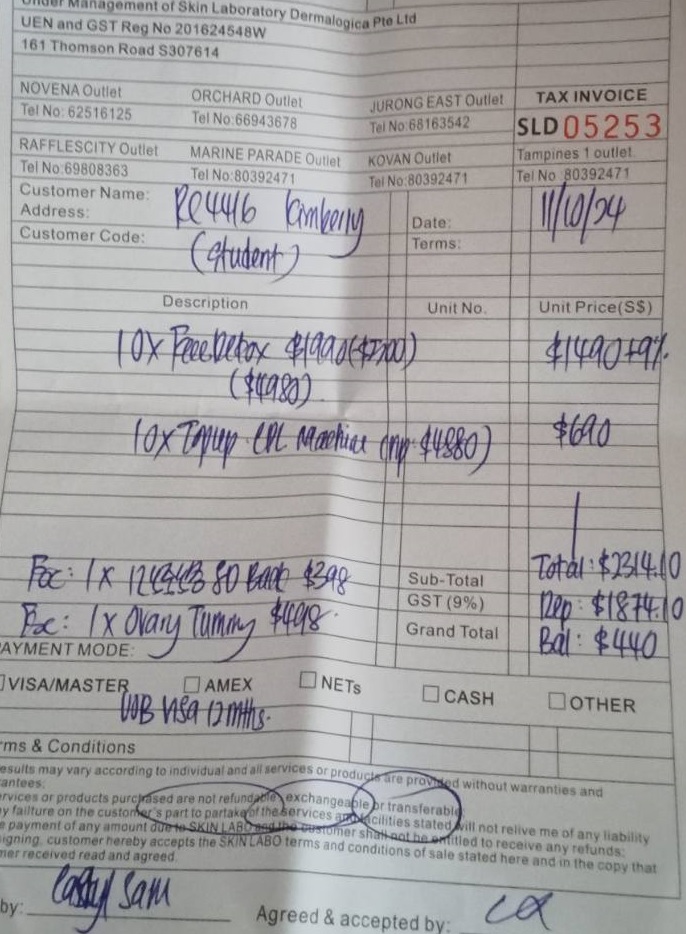 Under Management of Skin Laboratory Dermalogica Pte Ltd
UEN and GST Reg No 201624548W
161 Thomson Road S307614
NOVENA Outlet ORCHARD Outlet JURONG EAST Outlet TAX INVOICE
Tel No: 62516125 Tel No:66943678 Tel No:68163542 SLD 05253
RAFFLESCITY Outlet MARINE PARADE Outlet KOVAN Outlet Tampines 1 outlet.
Tel No:69808363 Tel No:80392471 Tel No:80392471 Tel No :80392471
Customer Name: RC4416 Kimberly Date: 11/10/24
Address:
Customer Code: (Student) Terms:
Description Unit No. Unit Price(S$)
10x Face Detox $1990 ($2200) $1490+9%
($4980)
10x Topup IPL Machine (np: $4880) $690
Total: $2314.10
Foc: 1x 80 Back $398 Sub-Total
GST (9%) Dep: $1874.10
Foc: 1x Ovary Tummy $498. Grand Total Bal: $440
PAYMENT MODE:
VISA/MASTER AMEX NETs CASH OTHER
UOB Visa 12mths.
ms & Conditions
esults may vary according to individual and all services or products are provided without warranties and
antees:
rvices or products purchased are not refundable, exchangeable or transferable
y failture on the customer's part to partake of the services and facilities stated will not relive me of any liability
e payment of any amount due to SKIN LABO and the customer shall not be entitled to receive any refunds:
igning, customer hereby accepts the SKIN LABO terms and conditions of sale stated here and in the copy that
mer received read and agreed.
by: Sam Agreed & accepted by: